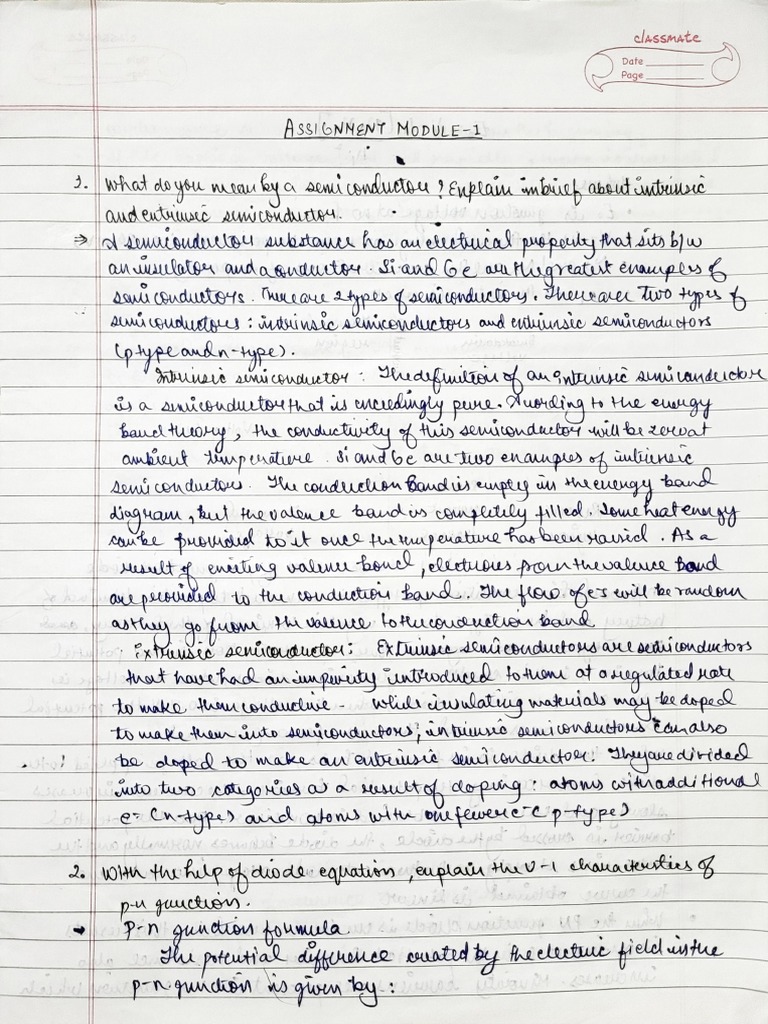 classmate
Date
Page
ASSIGNMENT MODULE-1
1. What do you mean by a semiconductor? Explain in brief about intrinsic
and extrinsic semiconductor.
⇒ A semiconductor substance has an electrical property that sits b/w
an insulator and a conductor. Si and Ge are the greatest examples of
semiconductors. There are 2 types of semiconductors. There are two types of
semiconductors: intrinsic semiconductors and extrinsic semiconductors
(p type and n-type).
Intrinsic semiconductor: The definition of an intrinsic semiconductor
is a semiconductor that is exceedingly pure. According to the energy
band theory, the conductivity of this semiconductor will be zero at
ambient temperature. Si and Ge are two examples of intrinsic
semiconductors. The conduction band is empty in the energy band
diagram, but the valence band is completely filled. Some heat energy
can be provided to it once the temperature has been raised. As a
result of exciting valence bond, electrons from the valence band
are provided to the conduction band. The flow of e-s will be random
as they go from the valence to the conduction band
Extrinsic semiconductor: Extrinsic semiconductors are semiconductors
that have had an impurity introduced to them at a regulated rate
to make them conductive - while insulating materials may be doped
to make them into semiconductors, intrinsic semiconductors can also
be doped to make an extrinsic semiconductor. They are divided
into two categories as a result of doping: atoms with additional
e- (n-type) and atoms with one fewer e- (p-type)
2. With the help of diode equation, explain the V-I characteristics of
p-n junction.
→ P-n junction formula
The potential difference created by the electric field in the
p-n junction is given by: